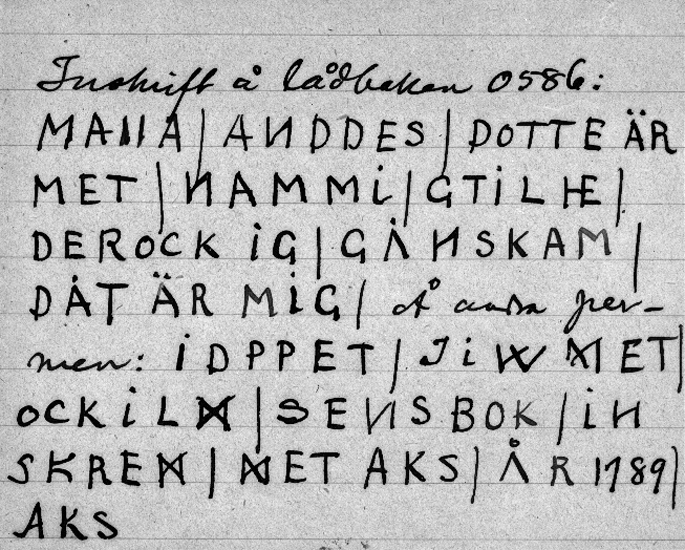 Inskrift å lådbaken 0586:
MAIIA| AИDDES | DOTTE ÄR
MET | ИAMMi| GTiLHE|
DEROCK iG| GÅИSKAM |
DÅT ÄR MiG| å andra per-
men: iDPPET| Ji W MET|
OCK iLM | SEИSBOK | iИ
SKREM | MET AKS| ÅR 1789|
AKS